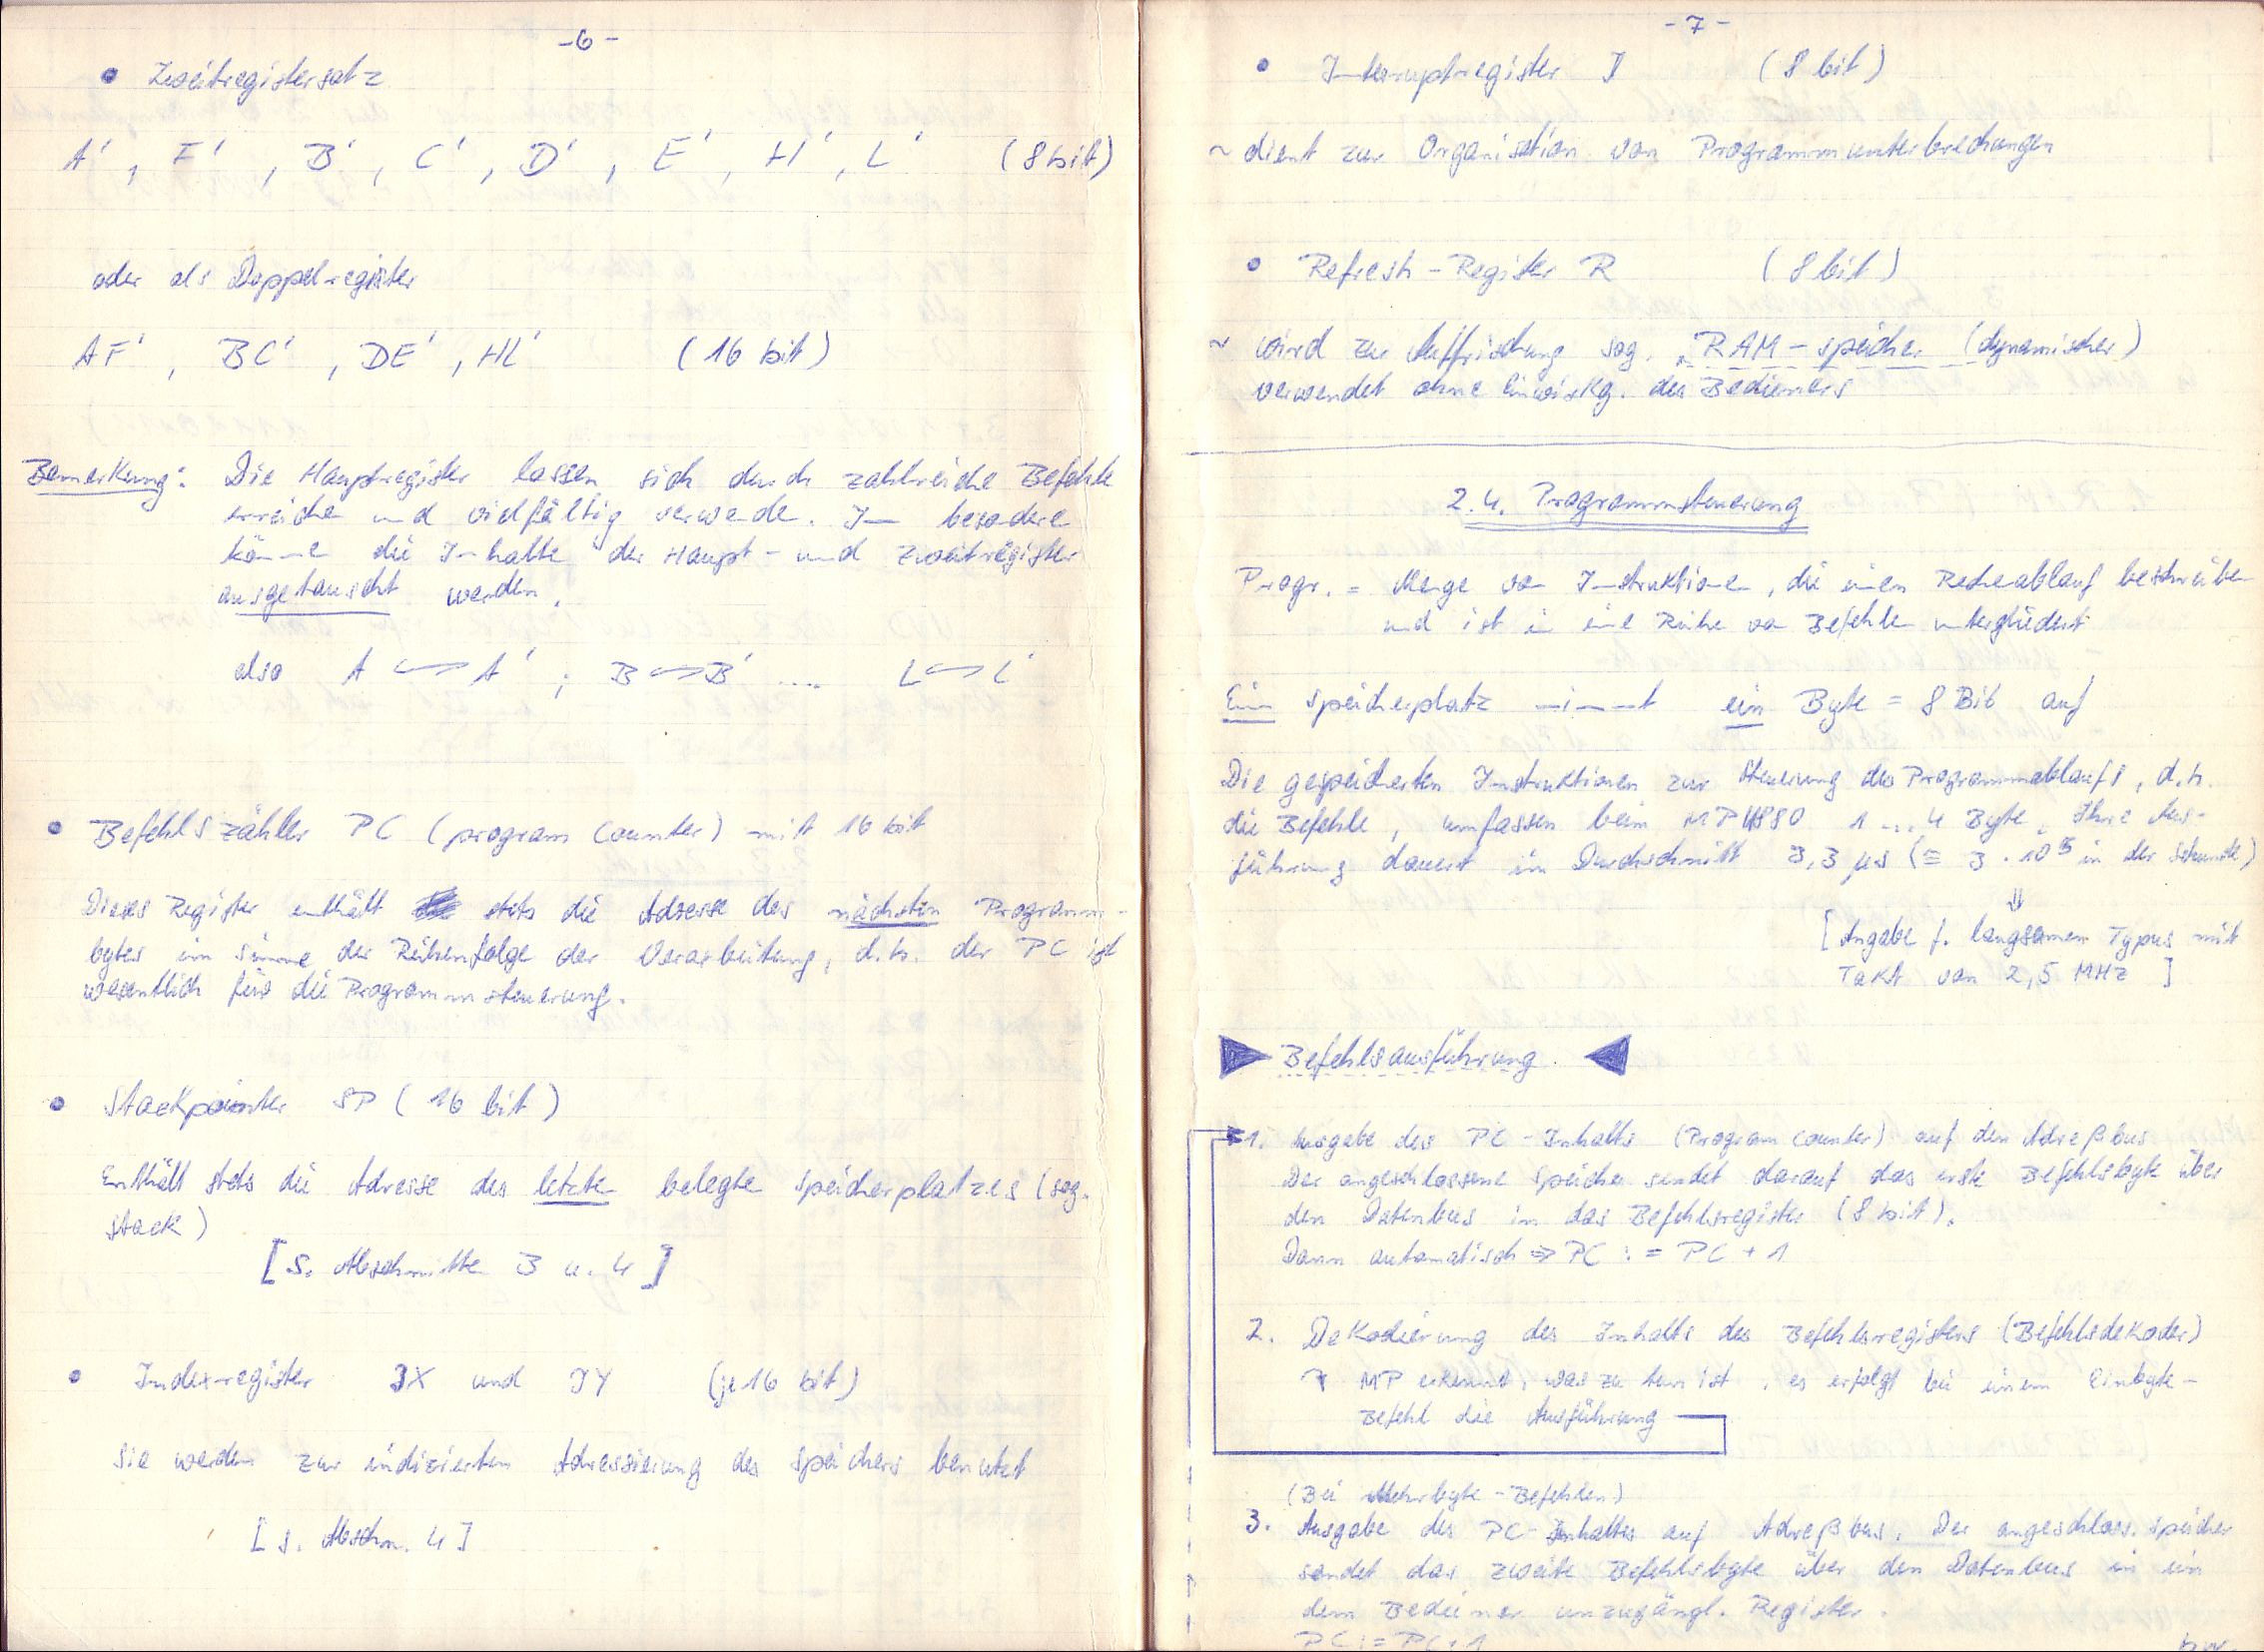 -6-
• Zweitregistersatz
A', F', B', C', D', E', H', L' (8 bit)
oder als Doppelregister
AF', BC', DE', HL' (16 bit)
Bemerkung: Die Hauptregister lassen sich durch zahlreiche Befehle
erreichen und vielfältig verwenden. Im besonderen
können die Inhalte der Haupt- und Zweitregister
ausgetauscht werden.
also A ⟷ A' ; B ⟷ B' .... L ⟷ L'
• Befehlszähler PC (program counter) mit 16 bit
Dieses Register enthält stets die Adresse des nächsten Programm-
bytes im Sinne der Reihenfolge der Verarbeitung, d.h. der PC ist
wesentlich für die Programmsteuerung.
• Stackpointer SP (16 bit)
Enthält stets die Adresse des letzten belegten Speicherplatzes (sog.
Stack)
[s. Abschnitte 3 u. 4]
• Indexregister IX und IY (je 16 bit)
Sie werden zur indizierten Adressierung des Speichers benutzt
[s. Abschn. 4]
-7-
• Interruptregister I (8 bit)
~ dient zur Organisation von Programmunterbrechungen
• Refresh-Register R (8 bit)
~ wird zur Auffrischung sog. RAM-Speicher (dynamischer)
verwendet ohne Einwirkg. des Bedieners
2.4. Programmsteuerung
Progr. = Menge von Instruktionen, die einen Rechenablauf beschreiben
und ist in eine Reihe von Befehlen untergliedert
Ein Speicherplatz nimmt ein Byte = 8 Bit auf
Die gespeicherten Instruktionen zur Steuerung des Programmablaufs, d.h.
die Befehle, umfassen beim MP U880 1 ... 4 Byte. Ihre Aus-
führung dauert im Durchschnitt 3,3 µs (≙ 3 · 10⁵ in der Sekunde)
⇓
[Angabe f. langsamen Typus mit
Takt von 2,5 MHz ]
▶ Befehlsausführung ◀
1. Ausgabe des PC-Inhalts (Program counter) auf den Adreßbus
Der angeschlossene Speicher sendet darauf das erste Befehlsbyte über
den Datenbus in das Befehlsregister (8 bit).
Dann automatisch ⇒ PC := PC + 1
2. Dekodierung des Inhalts des Befehlsregisters (Befehlsdekoder)
MP erkennt, was zu tun ist, es erfolgt bei einem Einbyte-
Befehl die Ausführung
(Bei Mehrbyte-Befehlen)
3. Ausgabe des PC-Inhaltes auf Adreßbus. Der angeschloss. Speicher
sendet das zweite Befehlsbyte über den Datenbus in ein
dem Bediener unzugängl. Register.
PC := PC + 1 bzw.